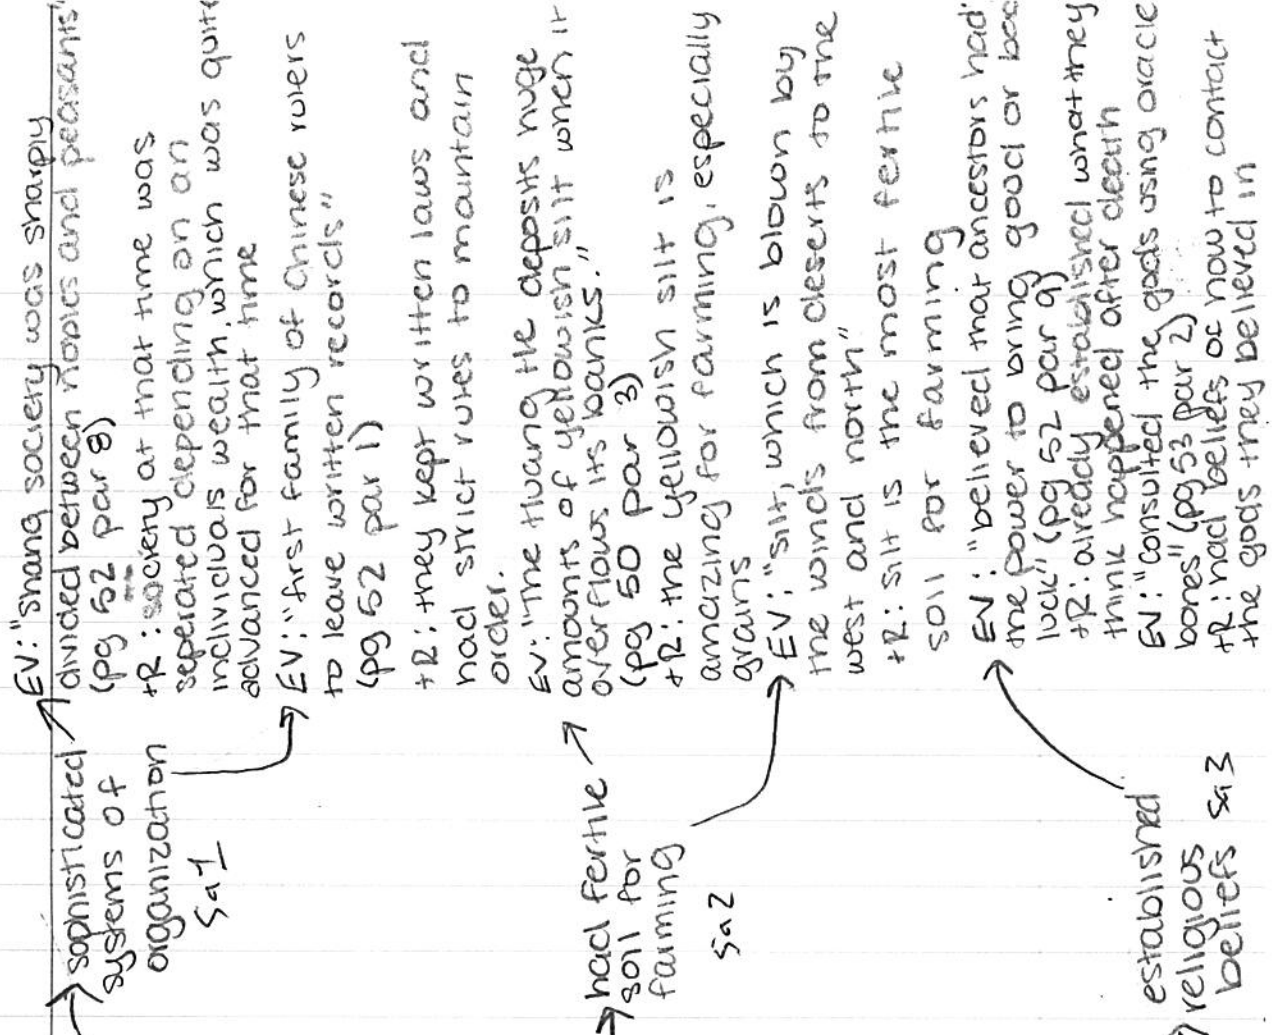 sophisticated
systems of
organization
Sa1
EV: "shang society was sharply
divided between nobles and peasants"
(pg 52 par 8)
+R: society at that time was
seperated depending on an
individuals wealth, which was quite
advanced for that time
EV: "first family of Chinese rulers
to leave written records"
(pg 52 par 1)
+R: they kept written laws and
had strict rules to maintain
order.
had fertile
soil for
farming
Sa2
EV: "The Huang He deposits huge
amounts of yellowish silt when it
overflows its banks."
(pg 50 par 3)
+R: the yellowish silt is
amazing for farming, especially
grains
EV: "silt, which is blown by
the winds from deserts to the
west and north"
+R: silt is the most fertile
soil for farming
established
religious
beliefs Sa3
EV: "believed that ancestors had
the power to bring good or bad
luck" (pg 52 par 9)
+R: already established what they
think happened after death
EV: "consulted the gods using oracle
bones" (pg 53 par 2)
+R: had beliefs of how to contact
the gods they believed in